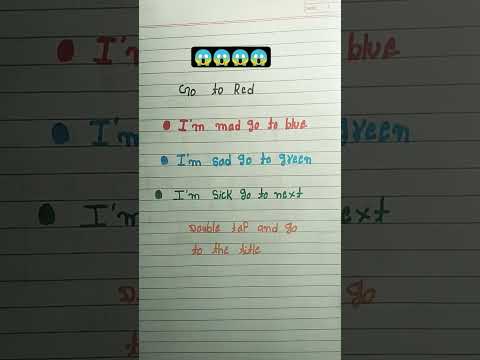 😱😱😱😱
Go to Red
I'm mad go to blue
I'm sad go to green
I'm sick go to next
Double tap and go
to the title